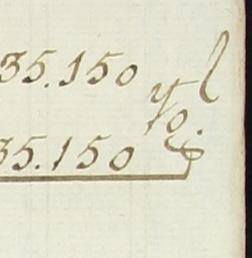 35.150
35.150